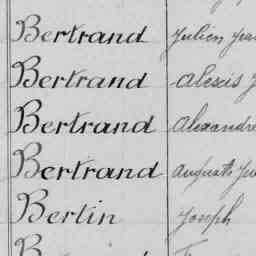 Bertrand Julien
Bertrand Alexis
Bertrand Alexandre
Bertrand Auguste
Bertin Joseph